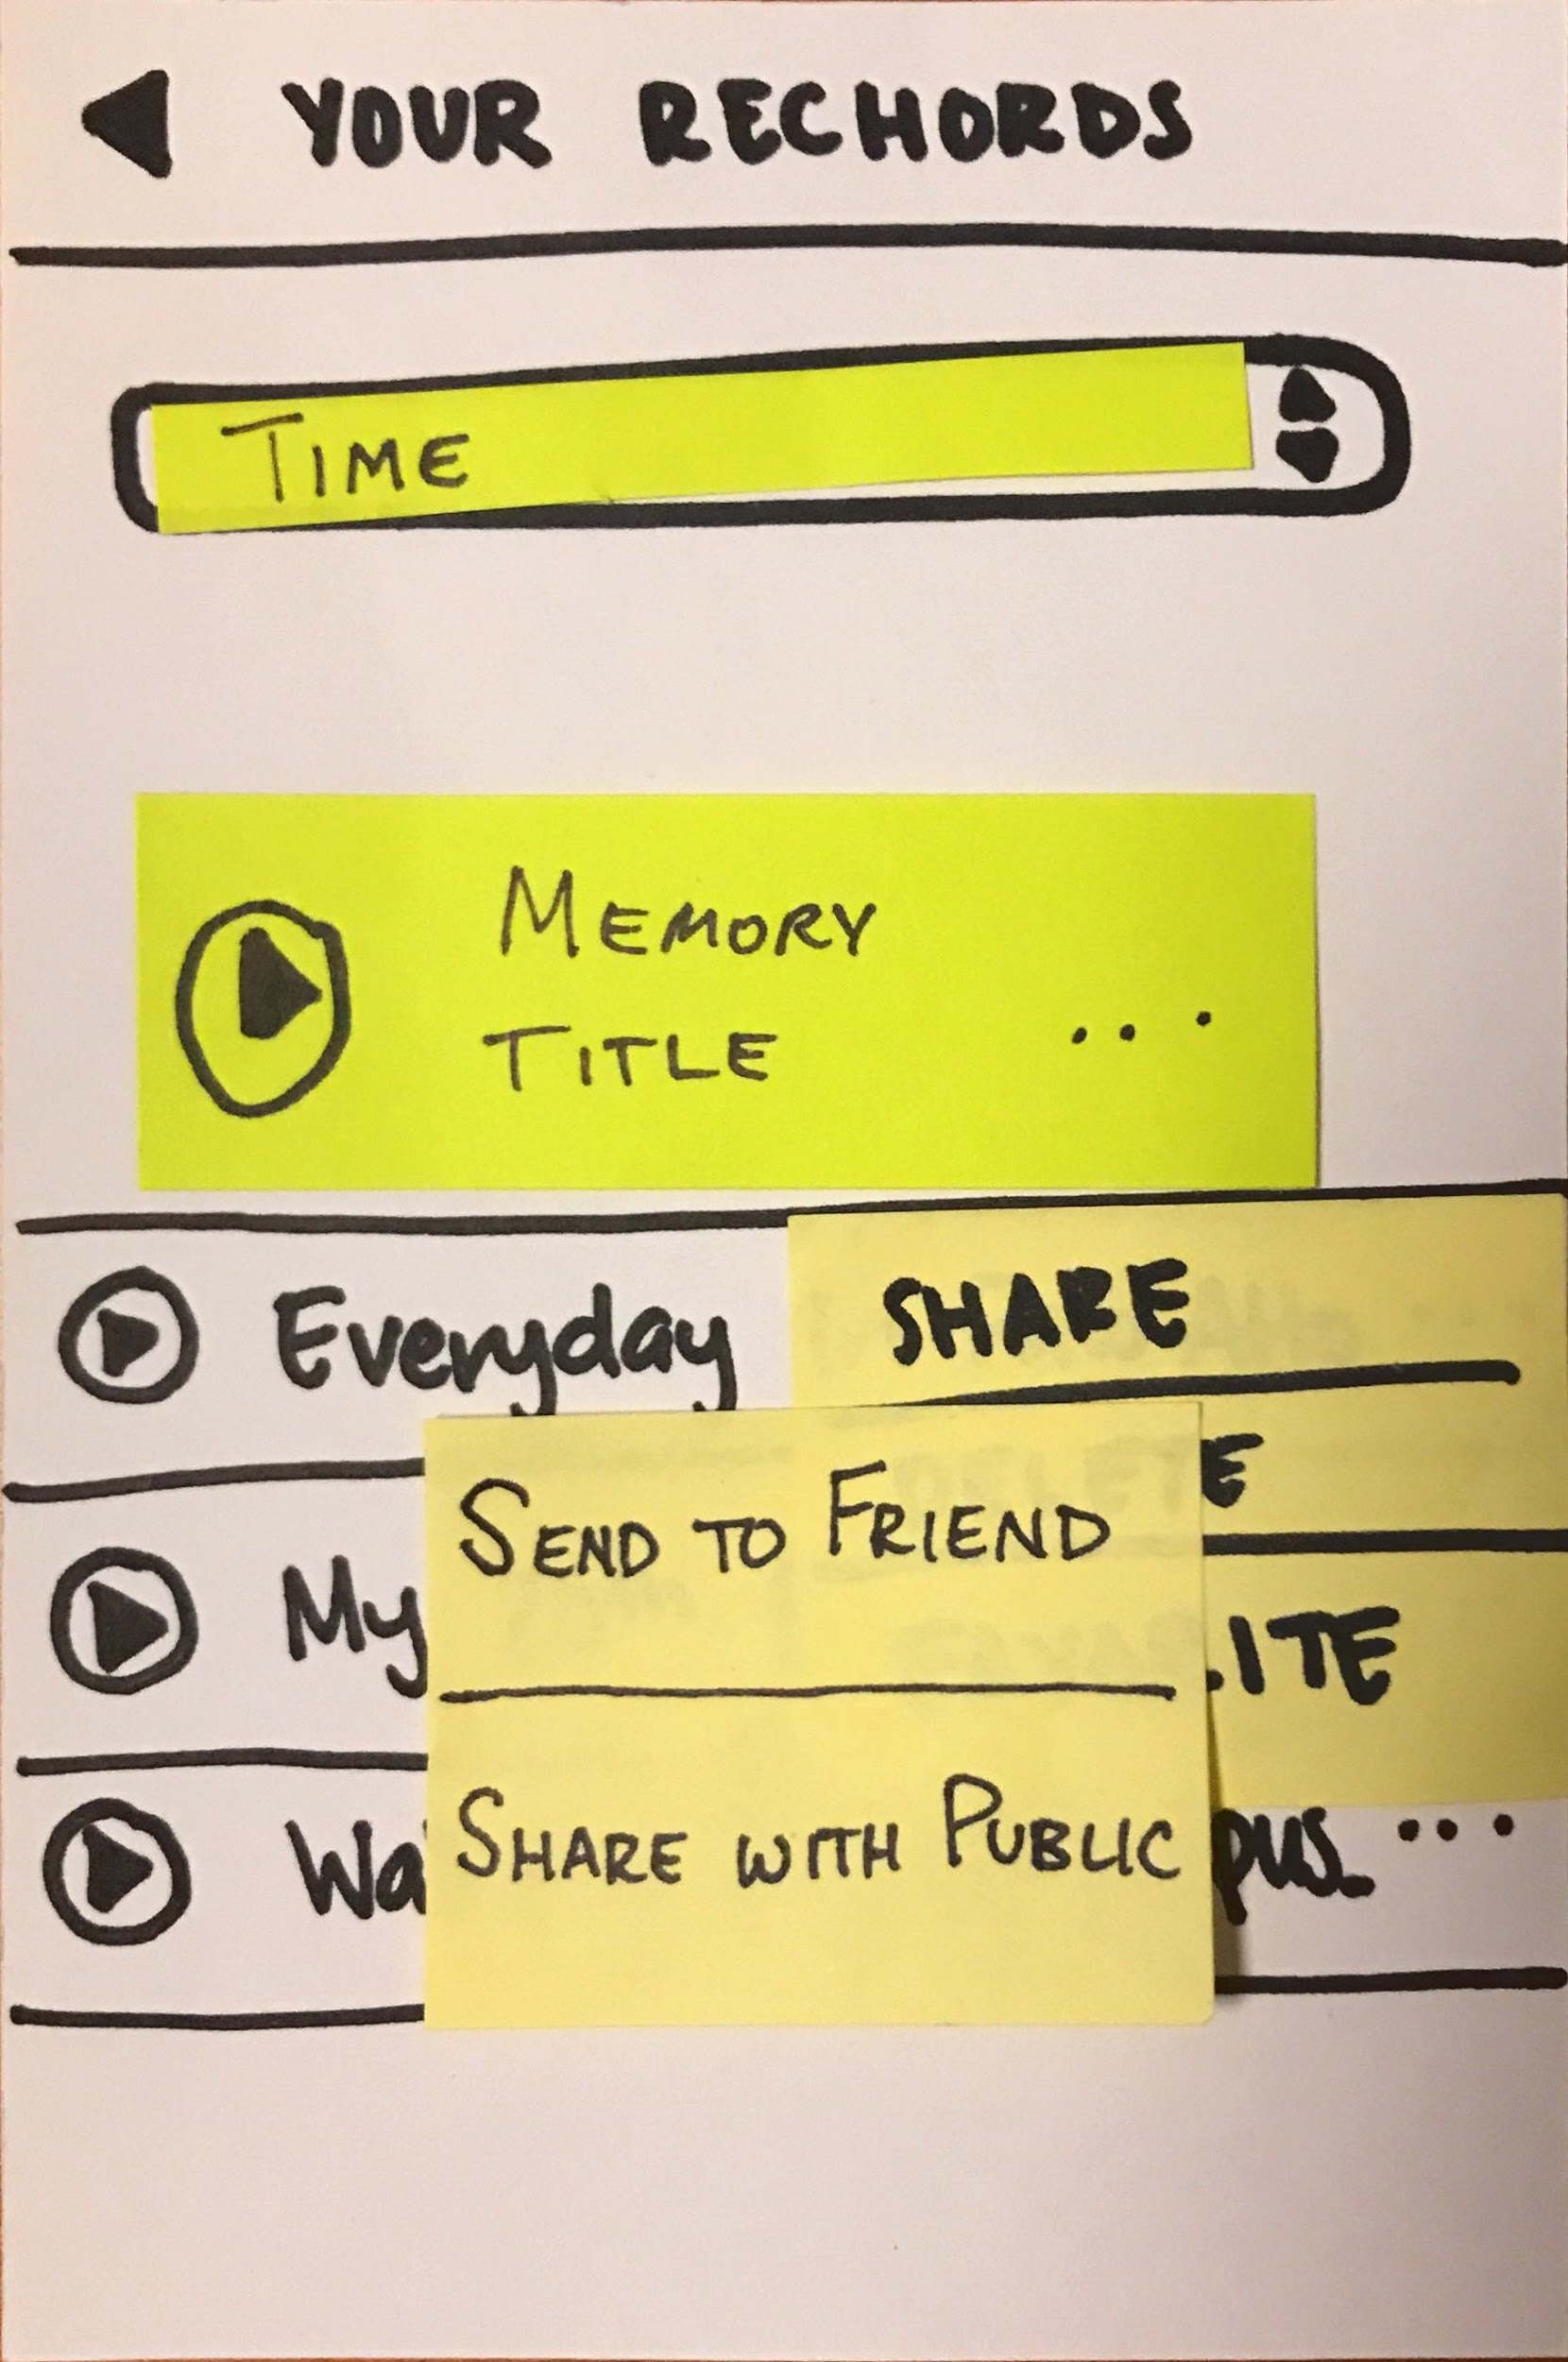 YOUR RECHORDS
TIME
MEMORY
TITLE ...
Everyday
SHARE
SEND TO FRIEND
My
SHARE WITH PUBLIC
...